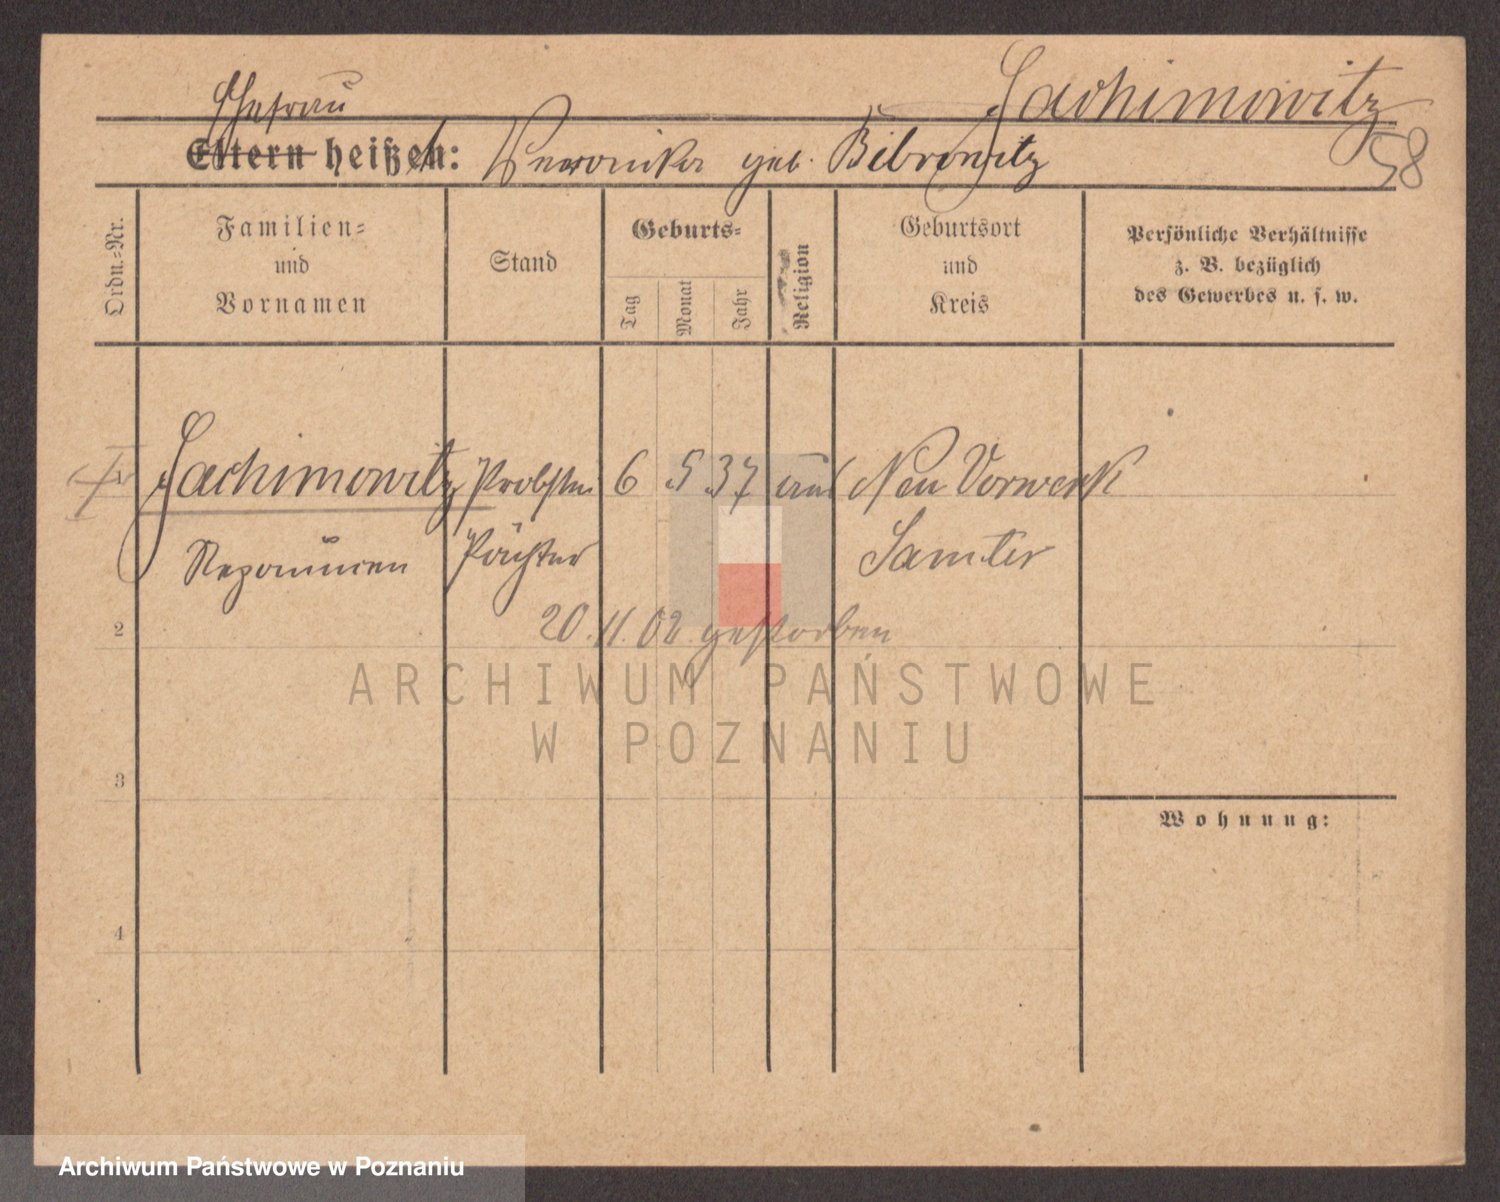 Jachimowitz
Ehefrau
58
Eltern heißen: Veronika geb. Bibrowitz
Ordn.-Nr.
Familien-
und
Vornamen
Stand
Geburts-
Tag
Monat
Jahr
Religion
Geburtsort
und
Kreis
Persönliche Verhältnisse
z. B. bezüglich
des Gewerbes u. s. w.
Jachimowitz Probstei 6 5 37 Neu Vorwerk
Pächter Samter
2
20.11.02 gestorben
ARCHIWUM PAŃSTWOWE
W POZNANIU
3
Wohnung:
4
Archiwum Państwowe w Poznaniu